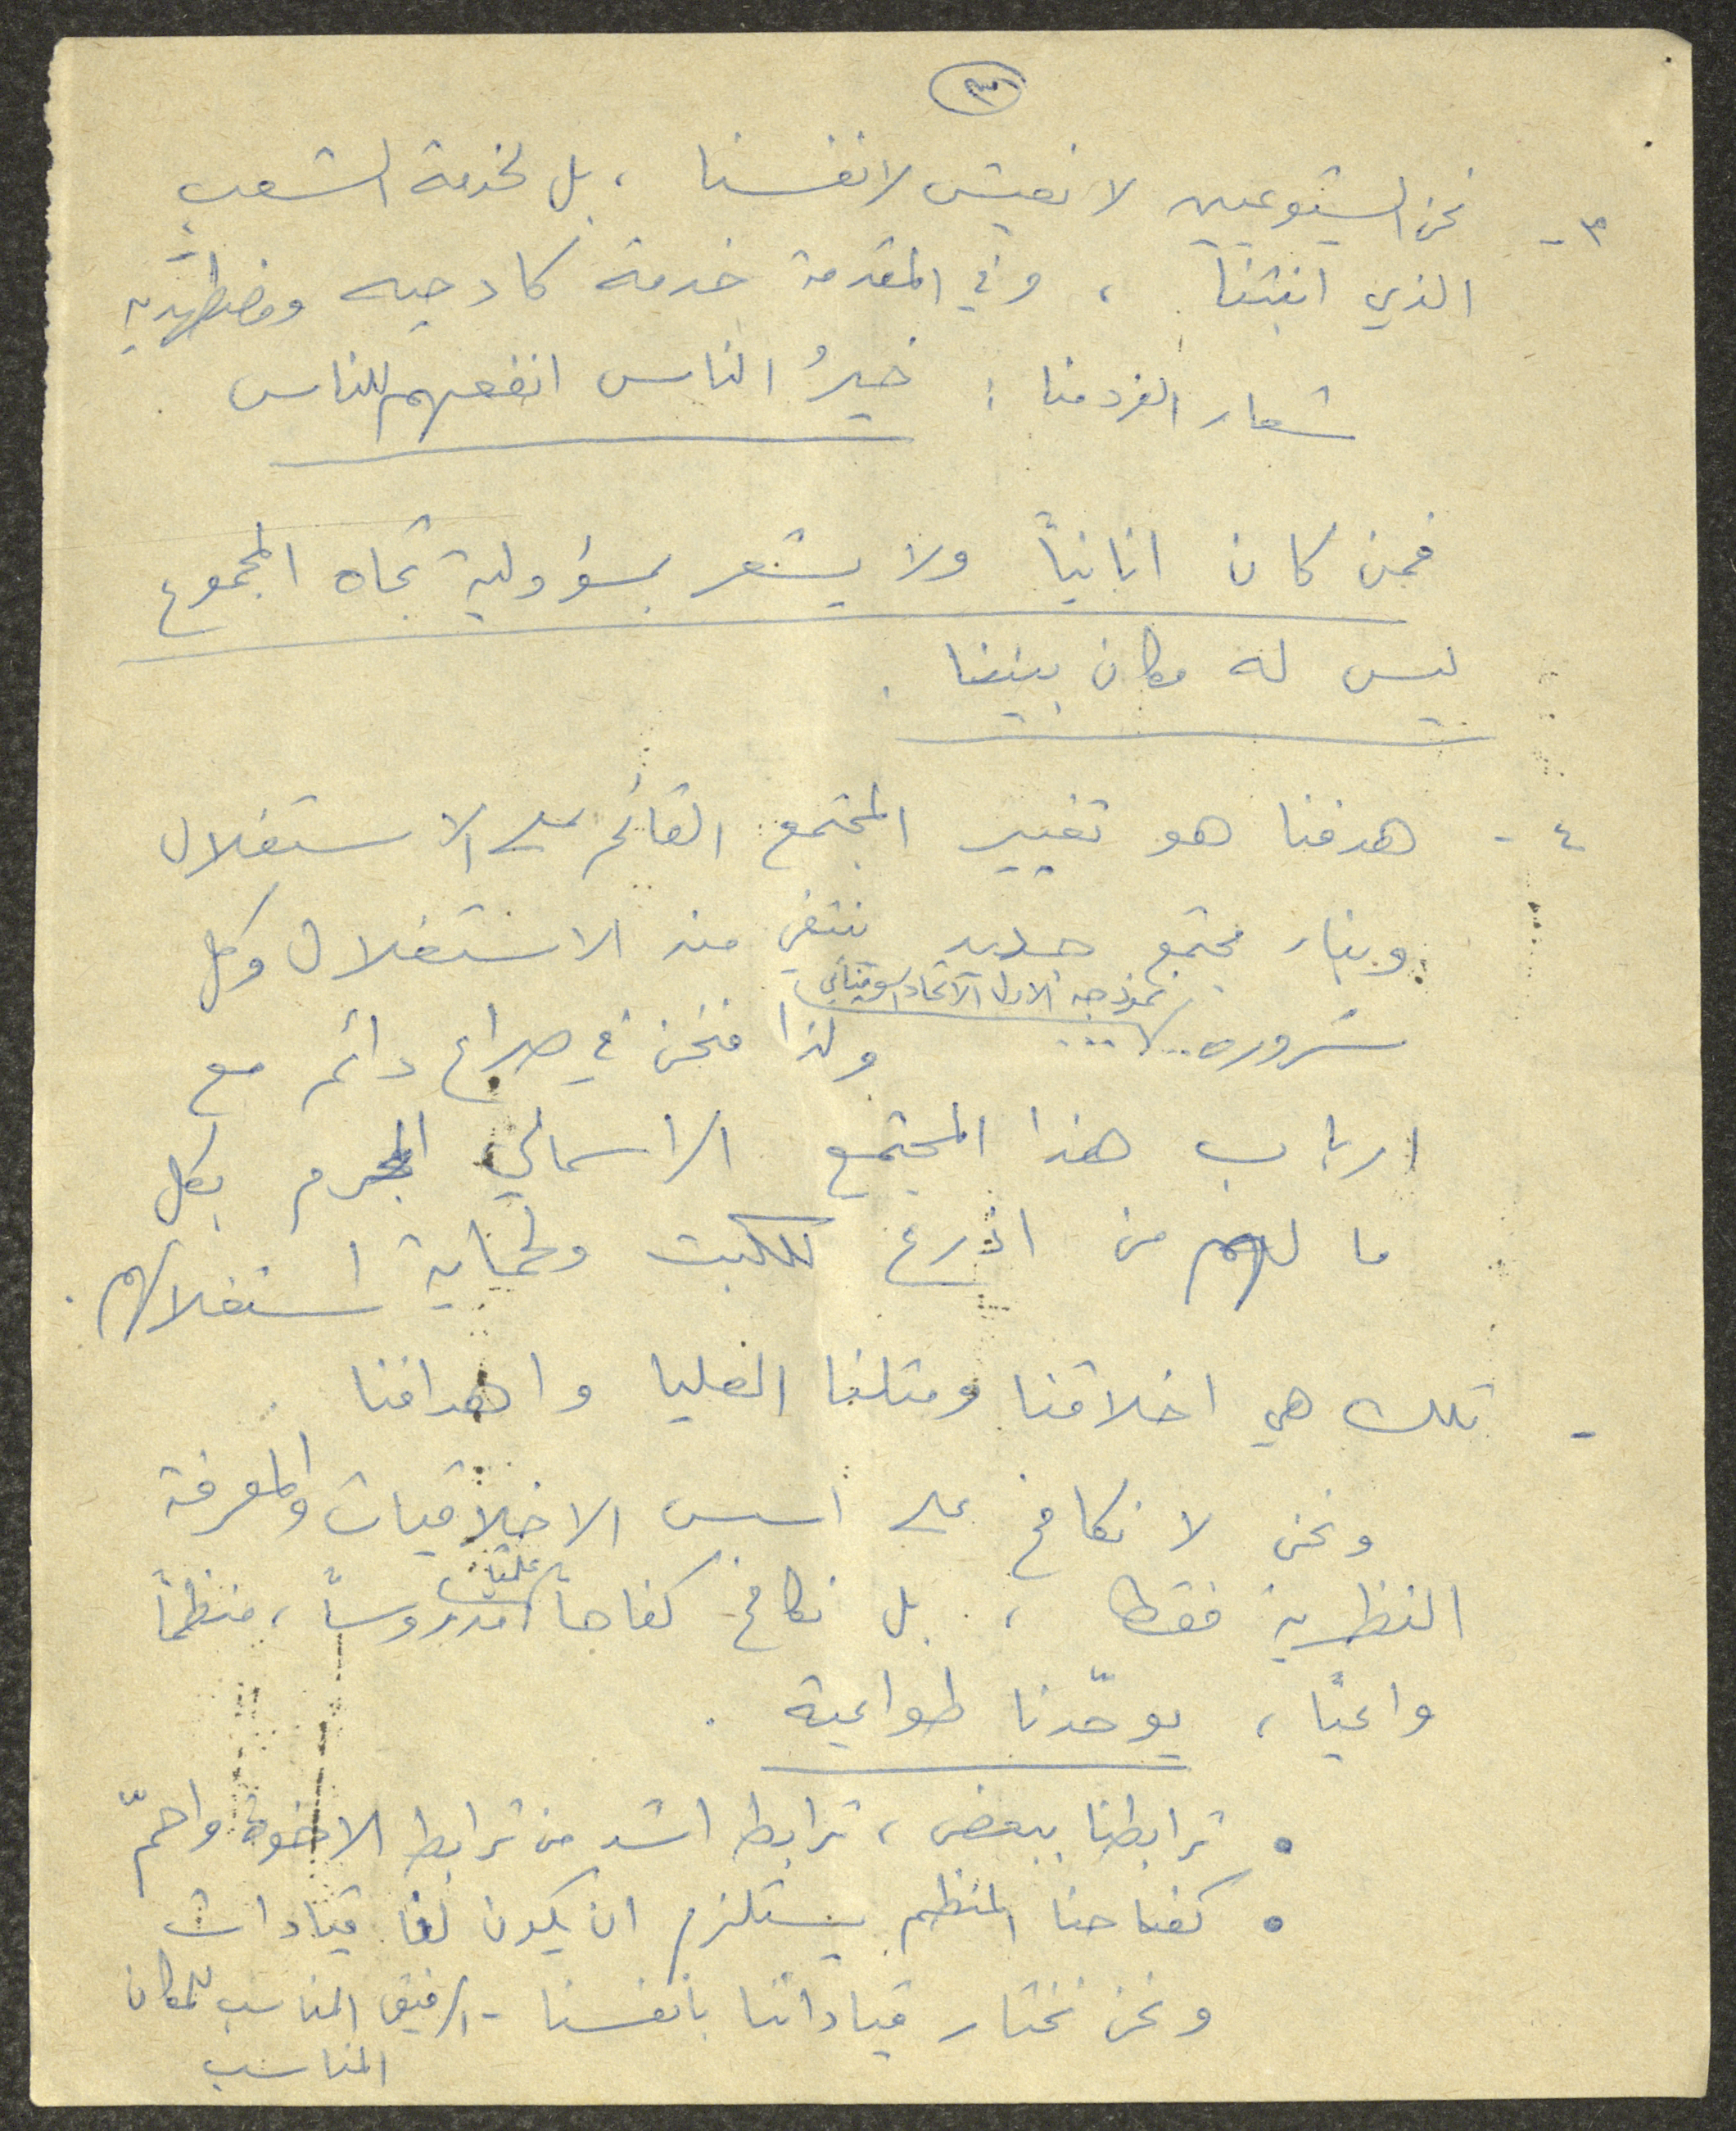 ٣
٣ - نحن الشيوعيين لا نعيش لانفسنا ، بل لخدمة الشعب
الذي انبتنا ، وفي المقدمة خدمة كادحيه ومضطهديه
شعار الفرد منا : خيرُ الناس انفعهم للناس
فمن كان انانياً ولا يشعر بمسؤولية تجاه المجموع
ليس له مكان بيننا .
٤ - هدفنا هو تغيير المجتمع القائم على الاستغلال
وبناء مجتمع جديد ننتفي منه الاستغلال وكل
نموذجه الاول الاتحاد السوفياتي
شروره ... ولذا فنحن في صراع دائم مع
ارباب هذا المجتمع الراسمالي المجرم بكل
ما لهم من اذرع للكبت ولحماية استغلالهم .
- تلك هي اخلاقنا ومثلنا العليا واهدافنا
ونحن لا نكافح على اسس الاخلاقيات والمعرفة
علمياً
النظرية فقط ، بل نكافح كفاحاً مدروساً ، منظماً
واعياً ، يوحّدنا طواعية .
• ترابطنا ببعض ، ترابط اشد من ترابط الاخوة
• كفاحنا المنظم يستلزم ان يكون لنا قيادات
ونحن نختار قياداتنا بانفسنا - الرفيق المناسب للمكان
المناسب